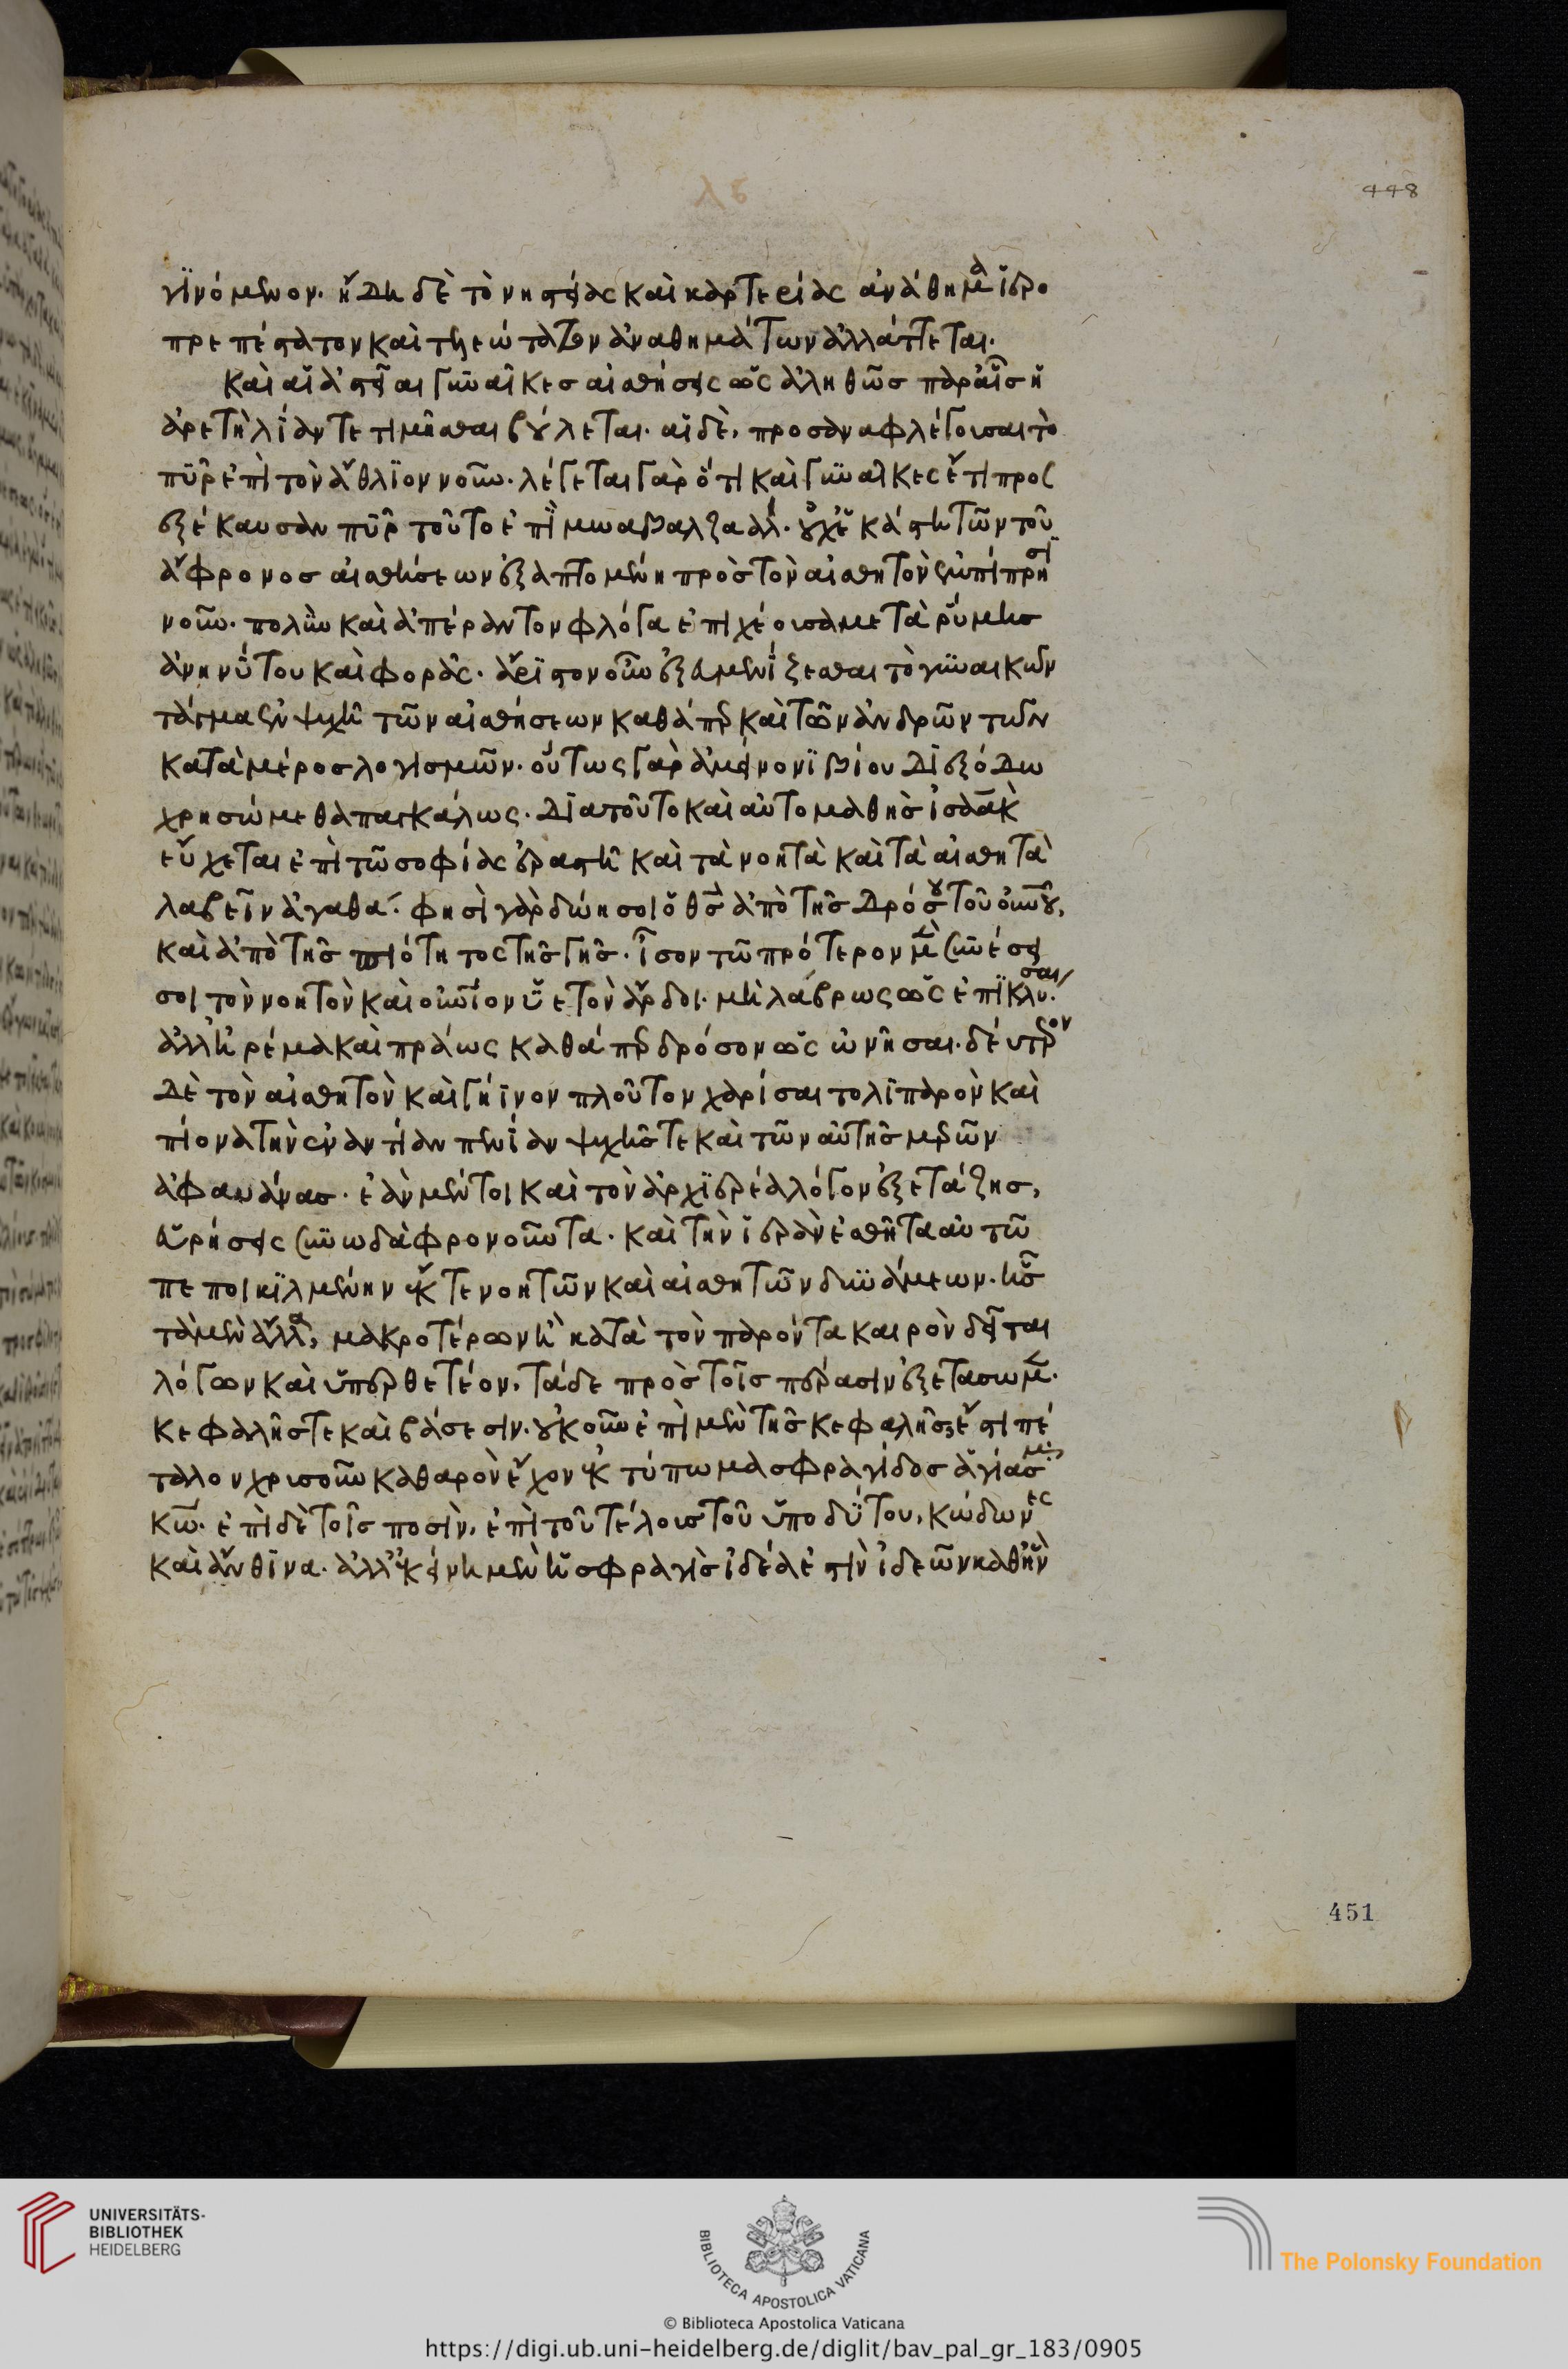 γϊνόμενον. ἤδη δὲ τὸ νηστείας καὶ καρτερίας ἀνάθημα ἱερο
πρεπέστατον καὶ τελεώτατον ἀναθημάτων ἀλλάττεται.
καὶ αἵ ἀστεῖαι γυναῖκες αἰσθήσεις ὡς ἀληθῶς παρ' αἷς ἡ
ἀρετὴ λίαν τετιμῆσθαι βούλεται. αἱ δὲ, προσαναφλέγουσαι τὸ
πῦρ ἐπὶ τὸν ἄθλϊον νοῦν. λέγεται γὰρ ὅτι καὶ γυναῖκες ἔτι προς
εξέκαυσαν πῦρ τοῦτο ἐπὶ μωαβ. οὐχ ἑκάστη τῶν τοῦ
ἄφρονος αἰσθήσεων ἐξαπτομένη πρὸς τὸν αἰσθητὸν ἐμπίπρησϊ
νοῦν. πολλὴν καὶ ἀπέραντον φλόγα ἐπιχέουσα μετὰ ῥύμης
ἀνηνύτου καὶ φορᾶς. ἄριστον οὖν ἐξευμενίζεσθαι τὸ γυναικῶν
τάγμα ἐν ψυχῇ τῶν αἰσθήσεων καθάπερ καὶ τῶν ἀνδρῶν τῶν
κατὰ μέρος λογισμῶν. οὕτως γὰρ ἀμείνονϊ βίου διεξόδω
χρησώμεθα παγκάλως. διατοῦτο καὶ αὐτομαθὴς ἰσαὰκ
εὔχεται ἐπὶ τῶ σοφίας ἐραστῆ καὶ τὰ νοητὰ καὶ τὰ αἰσθητὰ
λαβεῖν ἀγαθά. φησὶ γὰρ δώη σοι ὁ θς ἀπὸ τῆς δρόσου τοῦ οὐνοῦ,
καὶ ἀπὸ τῆς πιότητος τῆς γῆς. ἴσον τῶ πρότερον μὲν συνεχῆ
σοι τὸν νοητὸν καὶ οὐνιον ὑετὸν ἄρδοι. μὴ λάβρως ὡς ἐπϊκλύσαι.
ἀλλ' ἠρέμα καὶ πράως καθάπερ δρόσον ὡς ὠνῆσαι. δεύτερον
δὲ τὸν αἰσθητὸν καὶ γήϊνον πλοῦτον χαρίσαιτο λϊπαρὸν καὶ
πίονα τὴν ἐναντίαν πενΐαν ψυχῆς τε καὶ τῶν αὐτῆς μερῶν
ἀφαυάνας. ἐὰν μέντοι καὶ τὸν ἀρχϊερέα λόγον ἐξετάζης,
εὑρήσεις συνωδὰ φρονοῦντα. καὶ τὴν ἱερὰν ἐσθῆτα αὐτῶ
πεποικϊλμένην ἔκ τε νοητῶν καὶ αἰσθητῶν δυνάμεων. ἧς
τὰ μὲν ἄλλα, μακροτέρων ἢ κατὰ τὸν παρόντα καιρὸν δεῖται
λόγων καὶ ὑπερθετέον. τάδε πρὸς τοῖς πέρασιν ἐξετάσωμεν.
κεφαλῆς τε καὶ βάσεσιν. οὐκοῦν ἐπὶ μὲν τῆς κεφαλῆς, ἔστι πέ
ταλον χρυσοῦν καθαρὸν ἔχον ἐκτύπωμα σφραγίδος ἁγίασμα
κω. ἐπὶ δὲ τοῖς ποσὶν, ἐπὶ τοῦ τέλους τοῦ ὑποδύτου, κώδωνες
καὶ ἄνθϊνα. ἀλλ' ἐκείνη μὲν ἡ σφραγὶς ἰδέα ἐστὶν ἰδεῶν καθ' ἣν
448
451
UNIVERSITÄTS-
BIBLIOTHEK
HEIDELBERG
BIBLIOTECA APOSTOLICA VATICANA
The Polonsky Foundation
© Biblioteca Apostolica Vaticana
https://digi.ub.uni-heidelberg.de/diglit/bav_pal_gr_183/0905